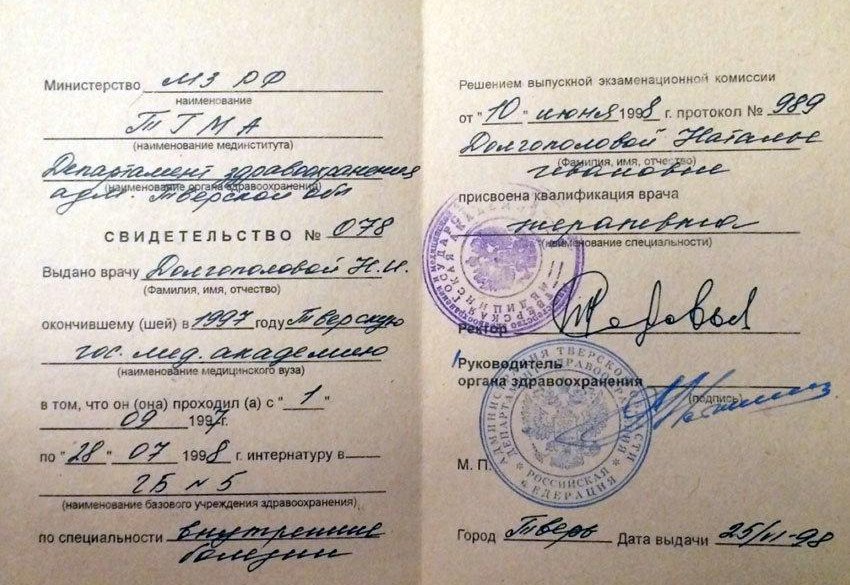 Министерство МЗ РФ
наименование
ТГМА
(наименование мединститута)
Департамент здравоохранения
(наименование органа здравоохранения)
адм. Тверской обл
СВИДЕТЕЛЬСТВО № 078
Выдано врачу Долгополовой Н.И.
(Фамилия, имя, отчество)
окончившему (шей) в 1997 году Тверскую
гос. мед. академию
(наименование медицинского вуза)
в том, что он (она) проходил (а) с "1"
09 1997г.
по "28" 07 1998 г. интернатуру в
ГБ №5
(наименование базового учреждения здравоохранения)
по специальности внутренние
болезни
Решением выпускной экзаменационной комиссии
от "10" июня 1998 г. протокол № 989
Долгополовой Наталье
(Фамилия, имя, отчество)
Ивановне
присвоена квалификация врача
терапевта
(наименование специальности)
Ректор
Руководитель
органа здравоохранения
(подпись)
М. П.
АДМИНИСТРАЦИЯ ТВЕРСКОЙ ОБЛАСТИ
ДЕПАРТАМЕНТ ЗДРАВООХРАНЕНИЯ
РОССИЙСКАЯ
ФЕДЕРАЦИЯ
Город Тверь Дата выдачи 25/VI-98